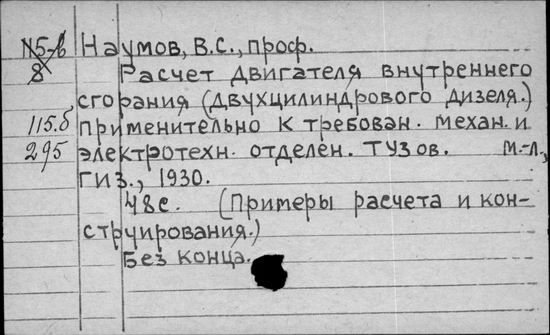 N5-б Наумов, В.С., проф.
8 Расчет двигателя внутреннего
сгорания (двухцилиндрового дизеля.)
115.б применительно к требован. механ. и
295 электротехн. отделен. ТУЗов. М.-Л.,
ГИЗ., 1930.
48с. (Примеры расчета и кон-
струирования.)
Без конца.